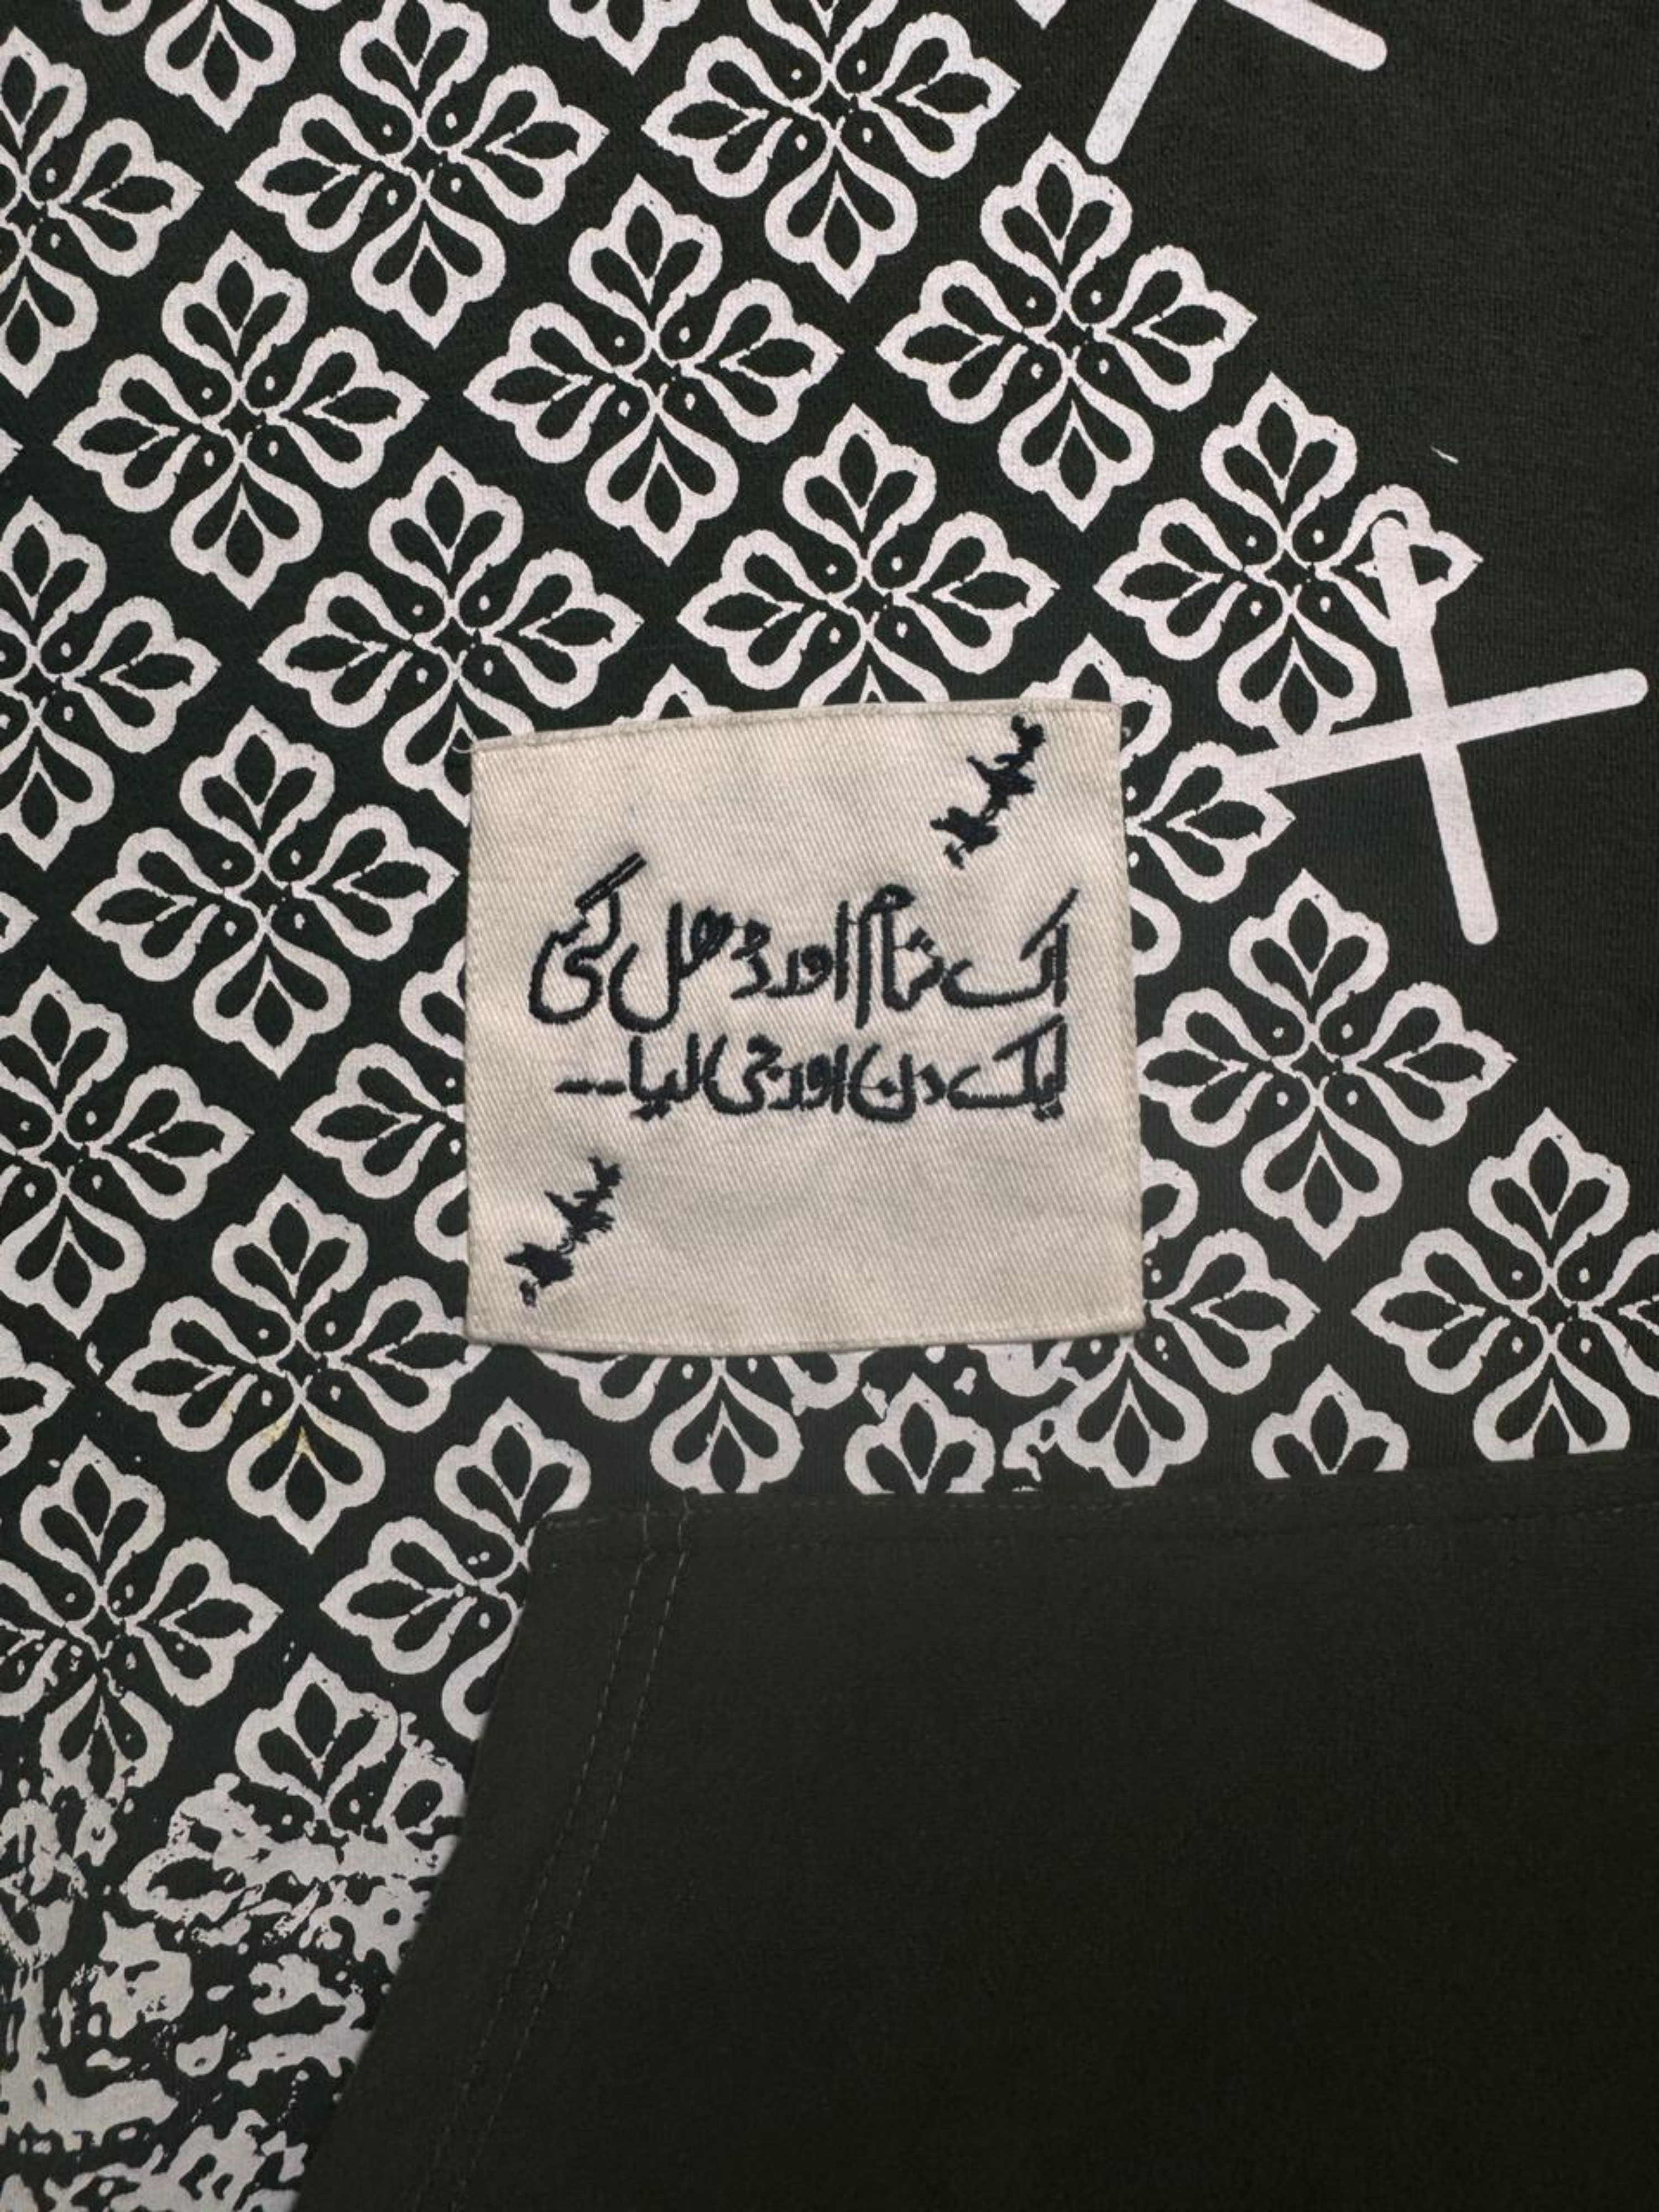 اک شام اور ڈھل گئی
ایک دن اور جی لیا---